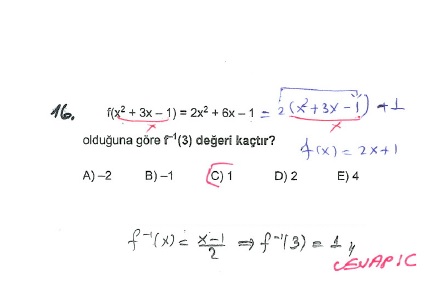 16. f(x² + 3x – 1) = 2x² + 6x – 1 = 2(x² + 3x – 1) + 1
x x
olduğuna göre f⁻¹(3) değeri kaçtır? f(x) = 2x + 1
A) –2 B) –1 C) 1 D) 2 E) 4
f⁻¹(x) = x–1/2 ⇒ f⁻¹(3) = 1 //
CEVAP: C